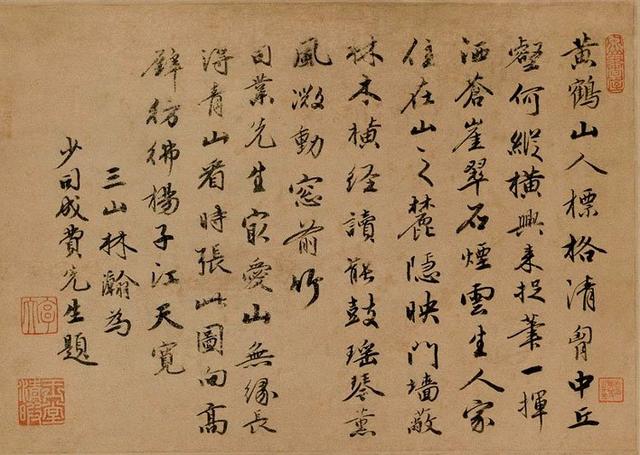 黄鶴山人標格清胷中丘
壑何縱横興来捉筆一揮
洒蒼崖翠石煙雲生人家
住在山之麓隐映門墻敞
林木横经讀罷鼓瑶琴薰
風微動窓前竹
司業先生最愛山無緣長
得青山看時張此圖向高
壁彷彿楊子江天寬
三山林瀚為
少司成費先生題